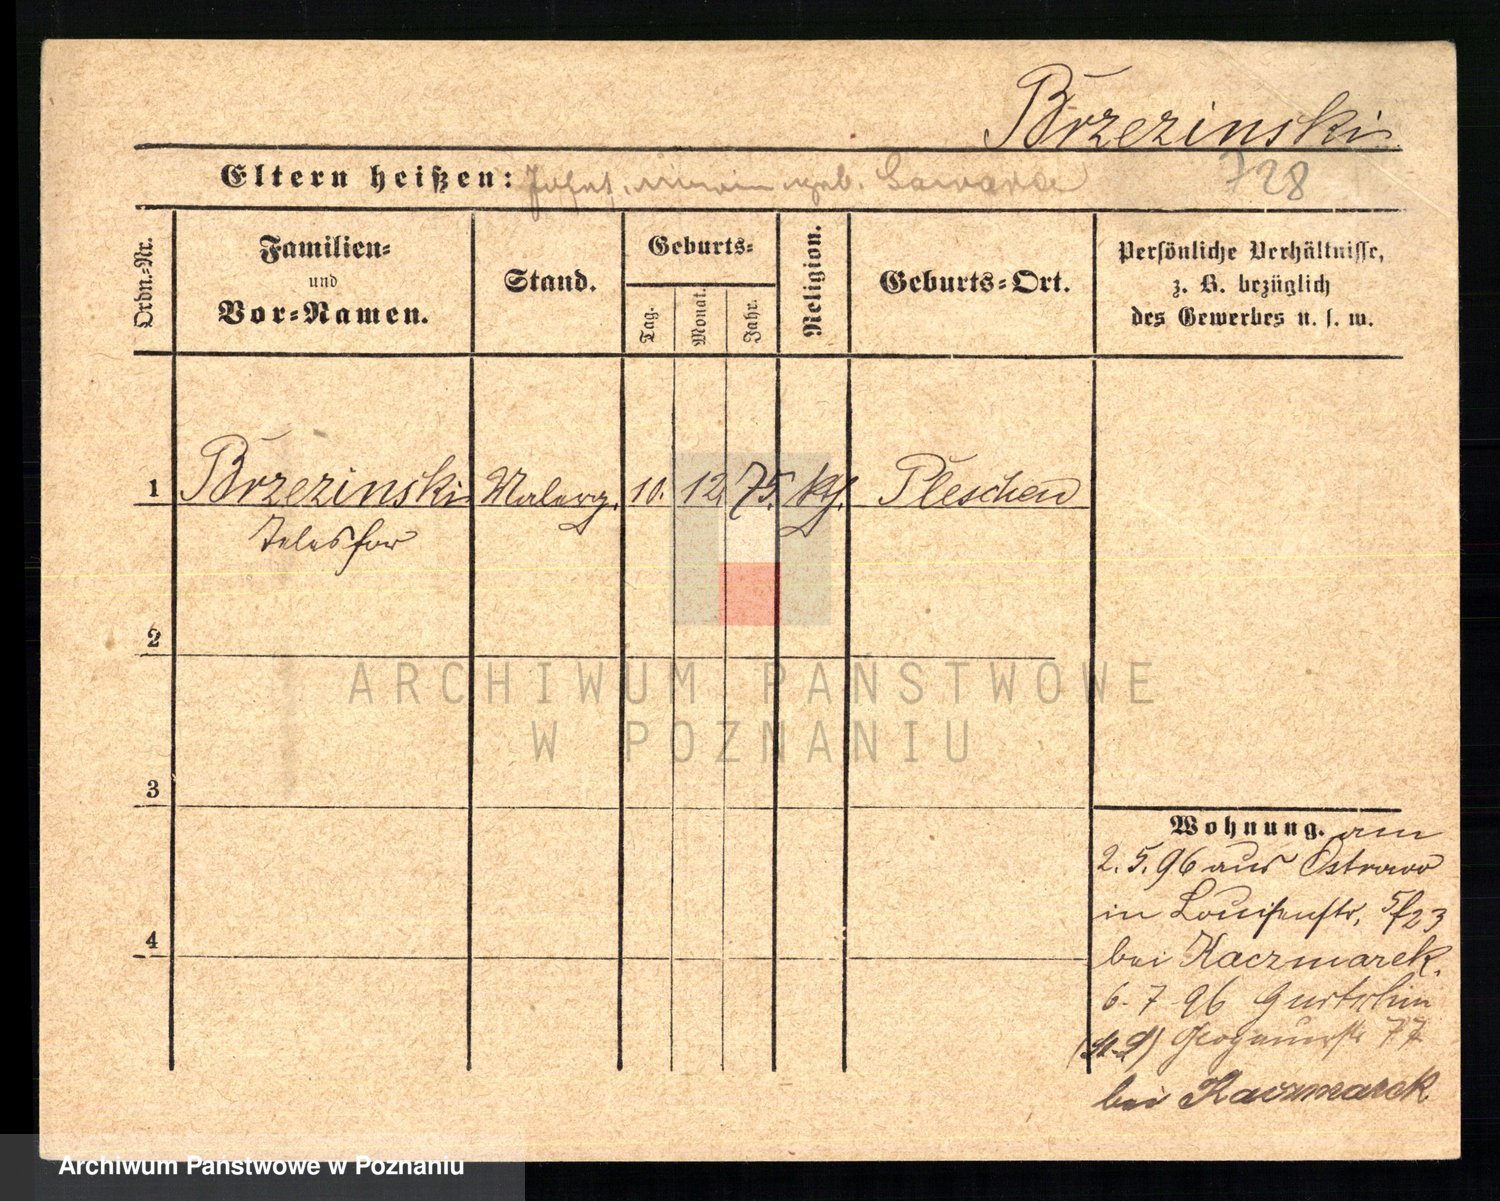 Brzezinski
Eltern heißen: Josef, geb.
728
Ordn.-Nr.
Familien-
und
Vor-Namen.
Stand.
Geburts-
Tag.
Monat.
Jahr.
Religion.
Geburts-Ort.
Persönliche Verhältnisse,
z. B. bezüglich
des Gewerbes u. s. w.
1 Brzezinski Malerg. 10. 12. 75. kth. Pleschen
Telesfor
2
3
4
ARCHIWUM PAŃSTWOWE
W POZNANIU
Wohnung. am
2. 5. 96 aus Ostrowo
in Louisenstr. 5/23
bei Kaczmarek.
6-7-96 Gurtschin
Glogauerstr 77
bei Kaczmarek
Archiwum Państwowe w Poznaniu